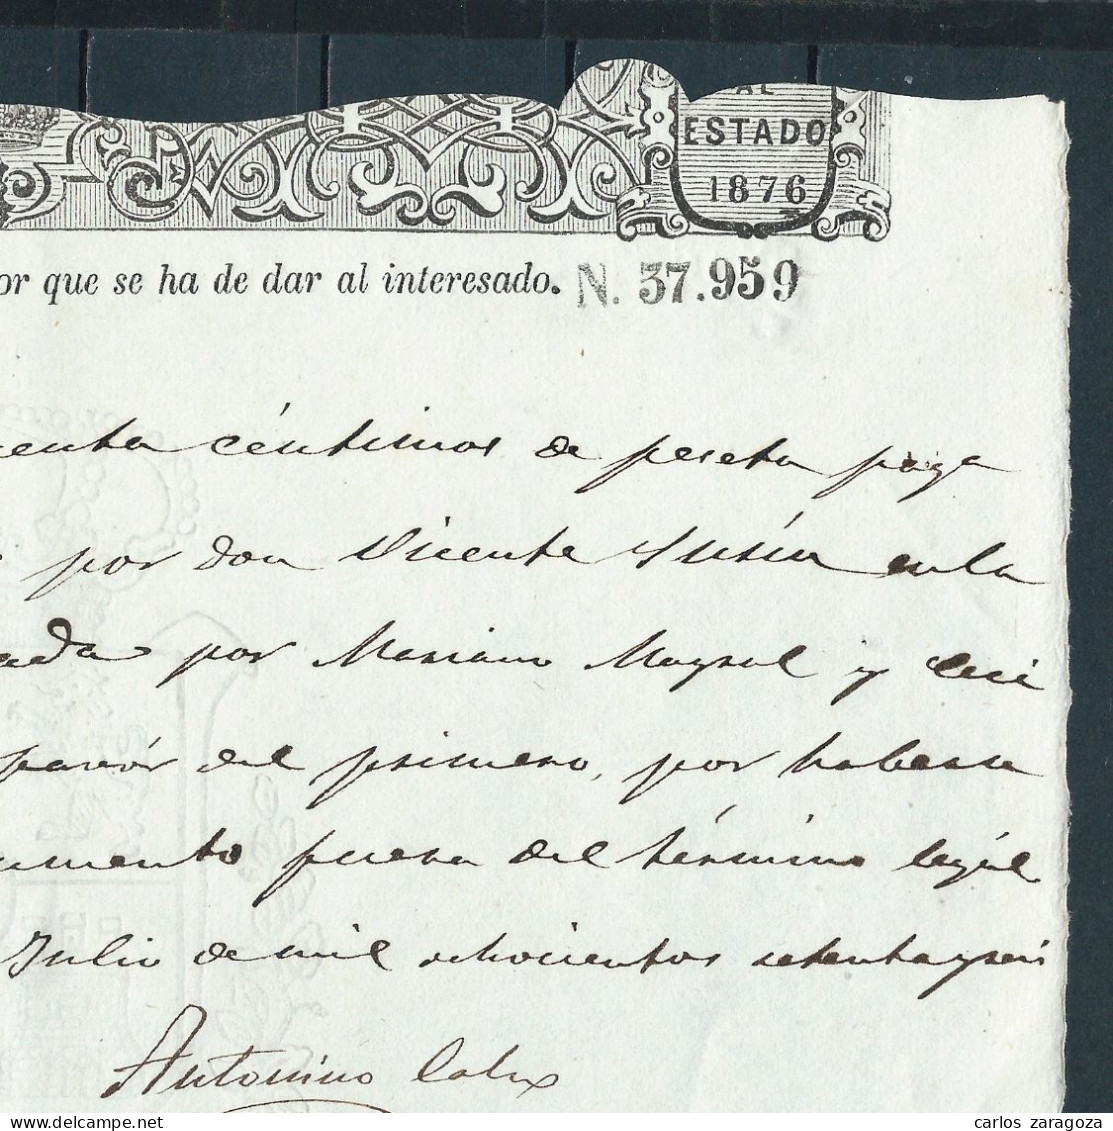 AL
ESTADO
1876
or que se ha de dar al interesado. N. 37.959
enta céntimos de peseta paga
por don Vicente Susín en la
ada por Mariano Mayral y
favór del primero, por haberse
umento fuera del término legál
Julio de mil ochocientos setenta y seis
Antonino
carlos zaragoza